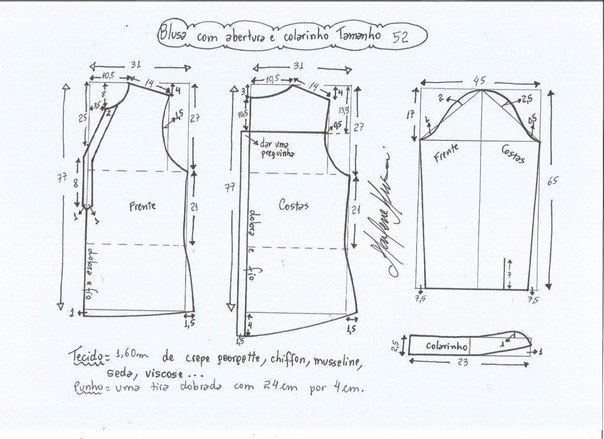 Blusa com abertura e colarinho Tamanho 52
31
10,5
14
4
8
3,5
2
1,5
25
27
77
8
1
1
Frente
21
dobra e fio
1
1,5
31
10,5
14
3
4
10,5
13,5
0,5
27
dar uma preguinha
77
Costas
21
dobra e fio
4
1,5
45
17
2
2,5
1
0,5
Frente
Costas
65
7
7,5
7,5
2,5
colarinho
1
1
23
Tecido = 1,60m de crepe georgette, chiffon, musseline,
seda, viscose ...
Punho = uma tira dobrada com 24cm por 4cm.